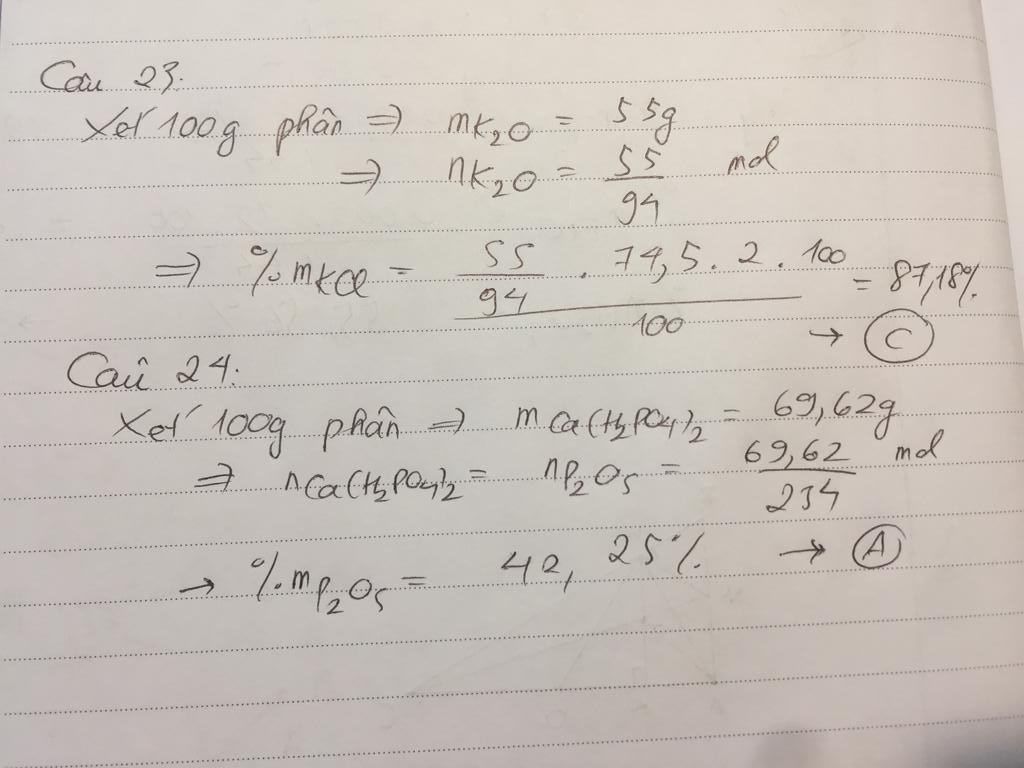 Câu 23:
Xét 100g phân => mK₂O = 55g
=> nK₂O = 55/94 mol
=> %mKCl = (55/94 . 74,5 . 2 . 100)/100 = 87,18%
→ C
Câu 24:
Xét 100g phân => mCa(H₂PO₄)₂ = 69,62g
=> nCa(H₂PO₄)₂ = nP₂O₅ = 69,62/234 mol
→ %mP₂O₅ = 42,25% → A